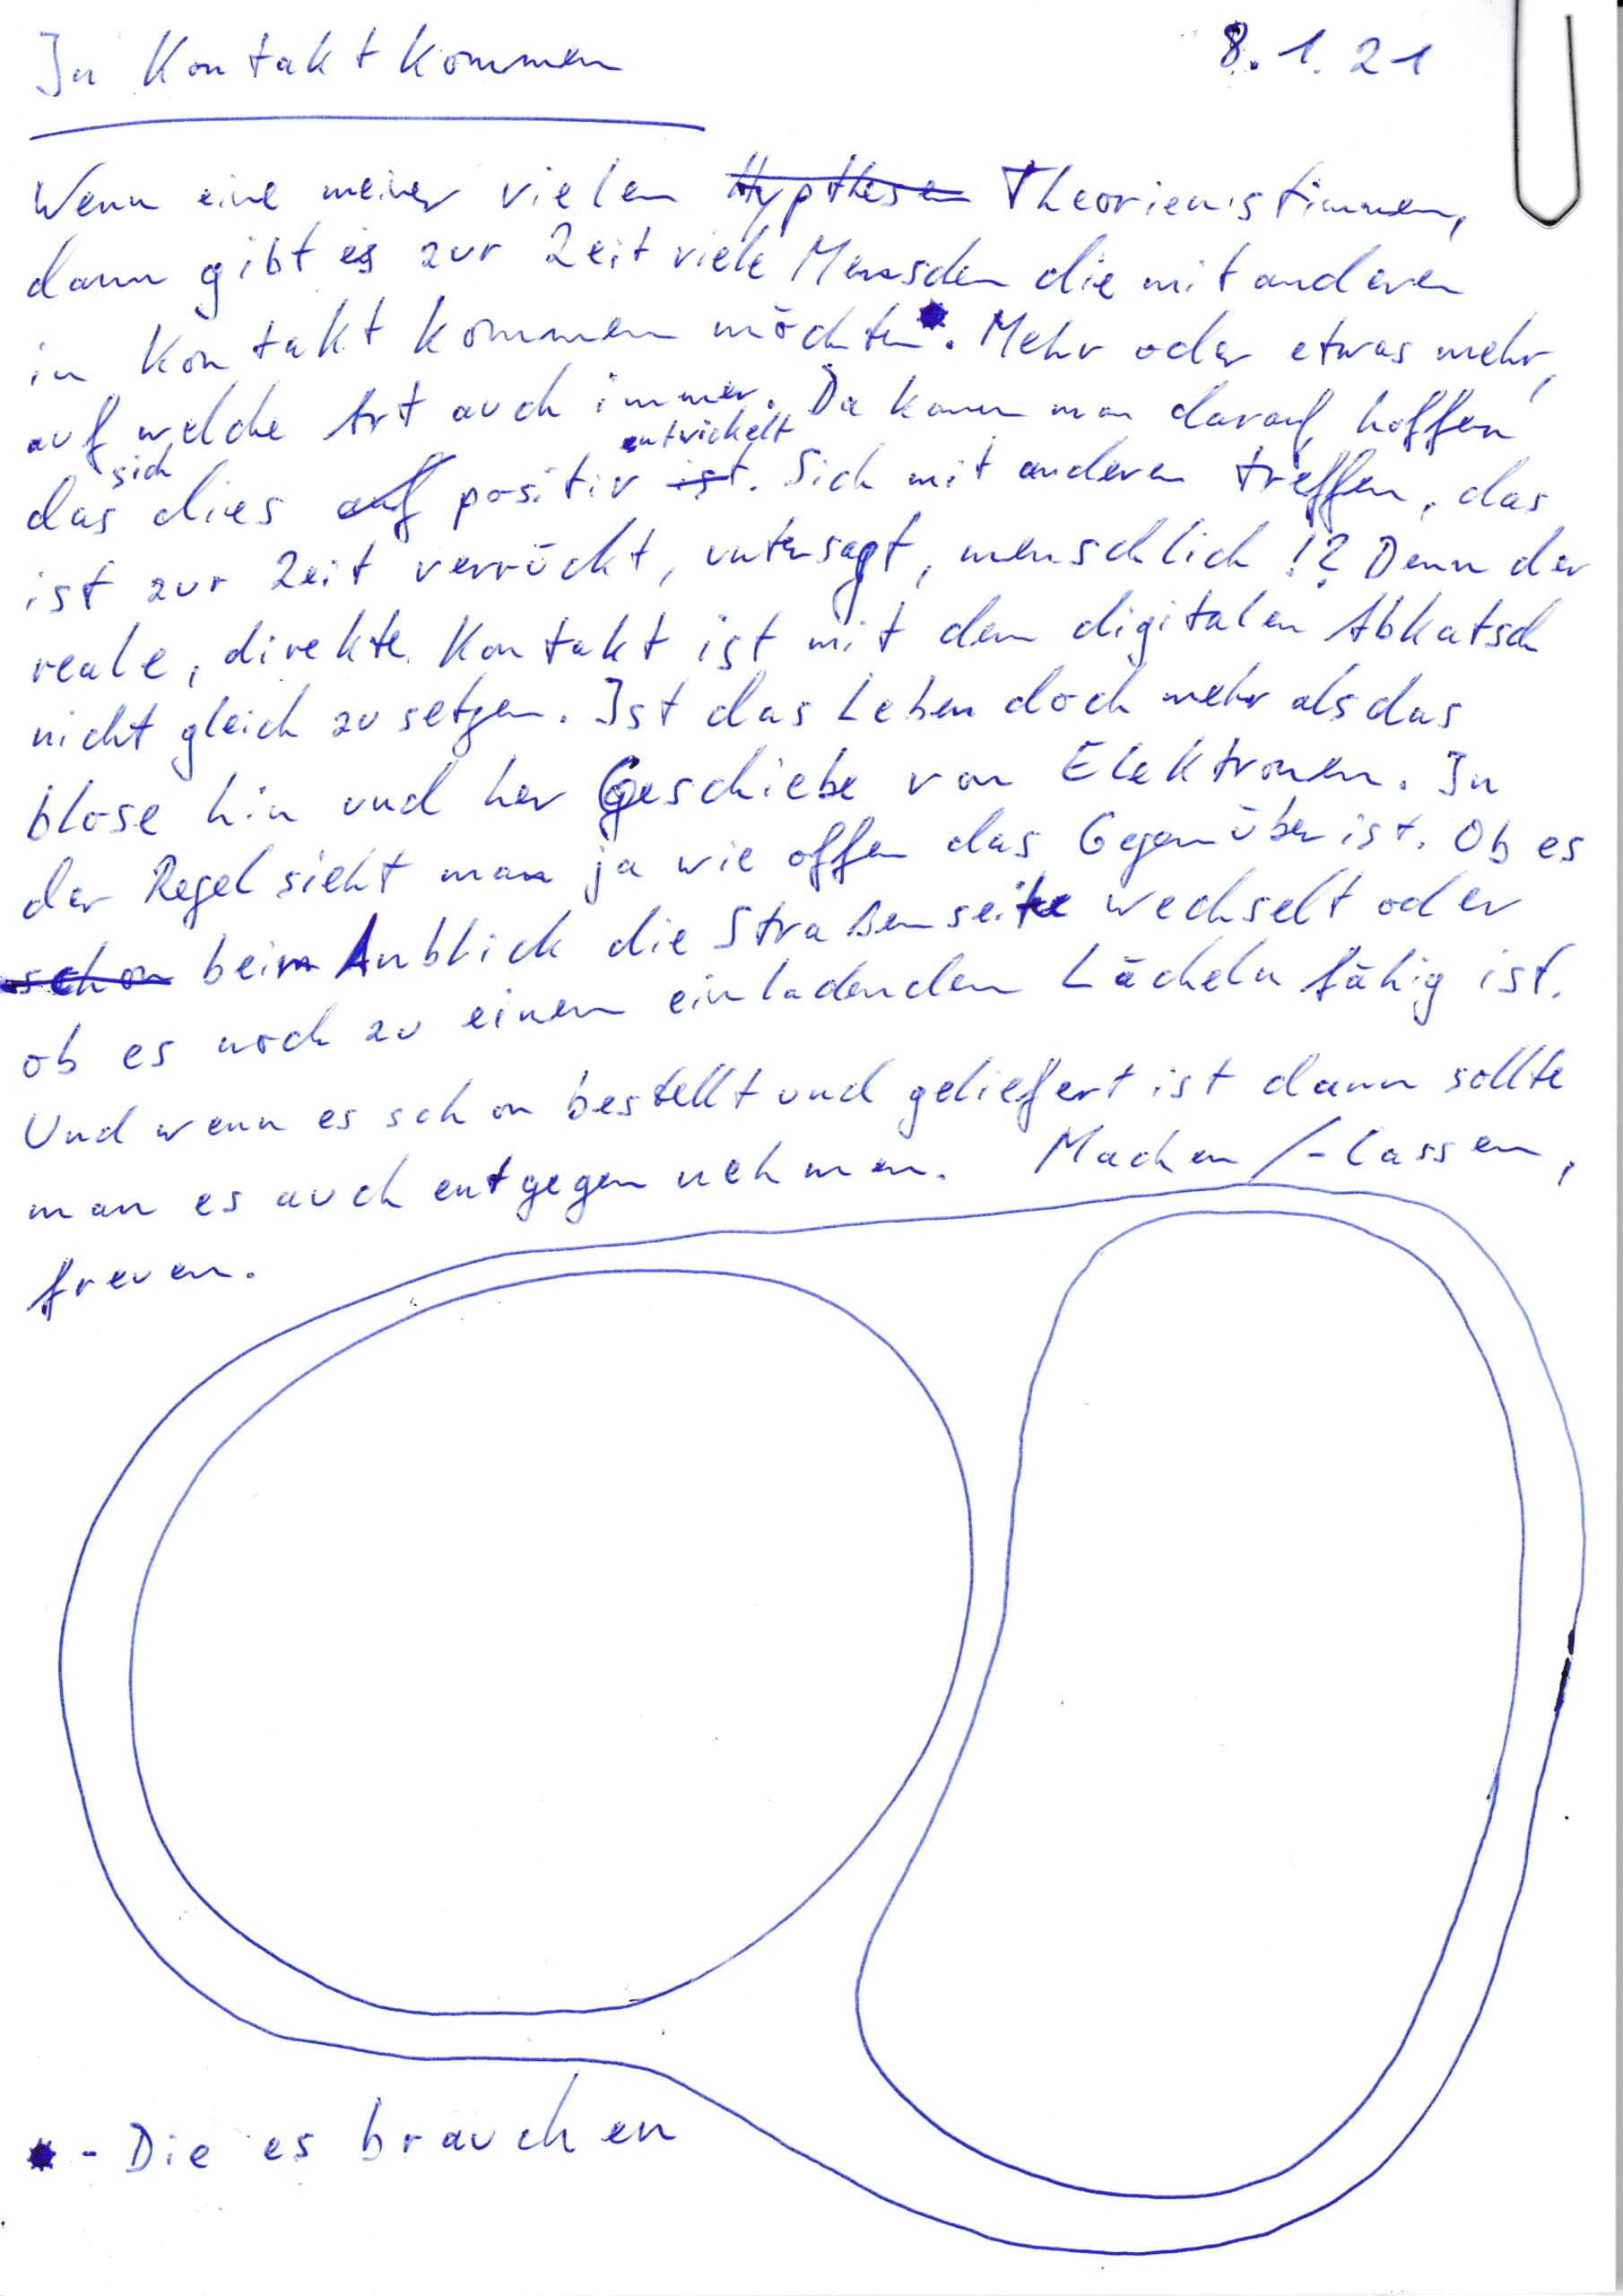 In Kontakt kommen 8.1.21
Wenn eine meiner vielen Hypthesen Theorien stimmen,
dann gibt es zur Zeit viele Menschen die mit anderen
in Kontakt kommen möchten*. Mehr oder etwas mehr,
auf welche Art auch immer. Da kann man darauf hoffen
sich entwickelt
das dies auf positiv ist. Sich mit anderen treffen, das
ist zur Zeit verrückt, untersagt, menschlich!? Denn der
reale, direkte Kontakt ist mit dem digitalen Abkatsch
nicht gleich zu setzen. Ist das Leben doch mehr als das
blose hin und her Geschiebe von Elektronen. In
der Regel sieht man ja wie offen das Gegenüber ist. Ob es
schon beim Anblick die Straßenseite wechselt oder
ob es noch zu einem einladenden Lächeln fähig ist.
Und wenn es schon bestellt und geliefert ist dann sollte
man es auch entgegen nehmen. Machen/-lassen,
freuen.
* - Die es brauchen